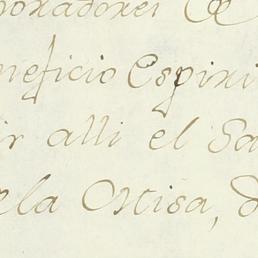 boradores
neficio Espiri
ir alli el Sa
la Misa, d